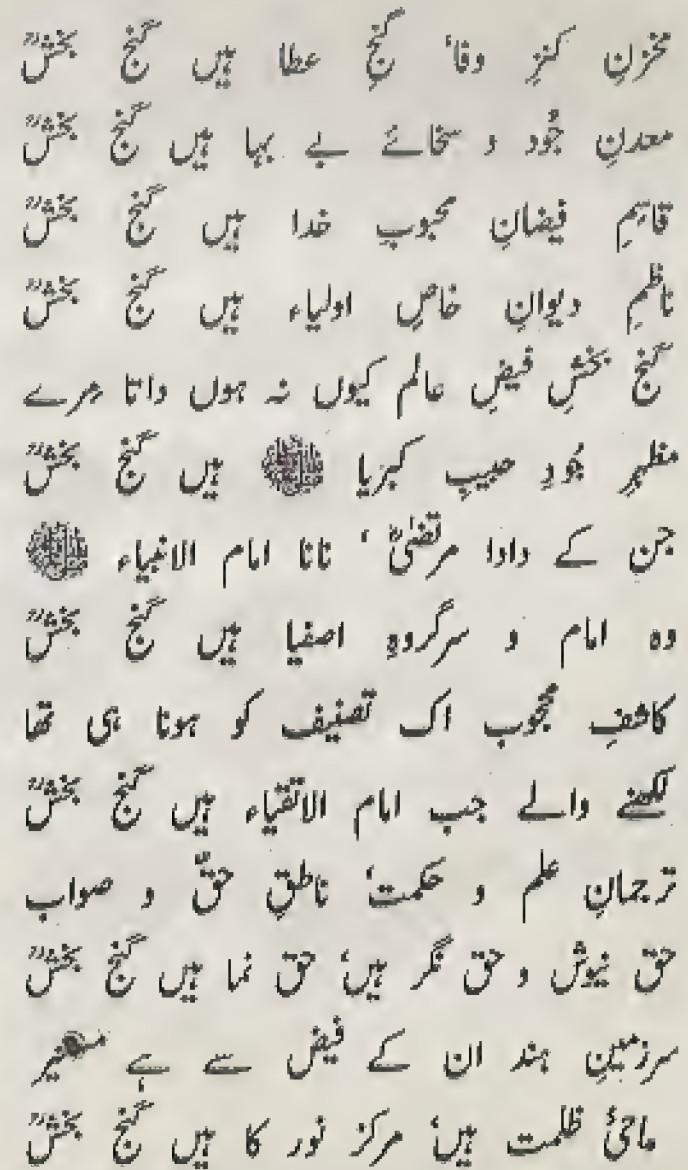 مخزنِ کنزِ وفا، گنجِ عطا ہیں گنج بخشؒ
معدنِ جُود و سخائے بے بہا ہیں گنج بخشؒ
قاسمِ فیضانِ محبوبِ خدا ہیں گنج بخشؒ
ناظمِ دیوانِ خاصِ اولیاء ہیں گنج بخشؒ
گنج بخشِ فیضِ عالم کیوں نہ ہوں داتا مِرے
مظہرِ جُودِ حبیبِ کبریا ﷺ ہیں گنج بخشؒ
جن کے دادا مرتضیٰؓ، نانا امام الانبیاء ﷺ
وہ امام و سرگروہِ اصفیا ہیں گنج بخشؒ
کاشفِ محجوب اک تصنیف کو ہونا ہی تھا
لکھنے والے جب امام الاتقیاء ہیں گنج بخشؒ
ترجمانِ علم و حکمت، ناطقِ حقّ و صواب
حق نیوش و حق نگر ہیں، حق نما ہیں گنج بخشؒ
سرزمینِ ہند ان کے فیض سے ہے
ماحیٔ ظلمت ہیں، مرکز نور کا ہیں گنج بخشؒ